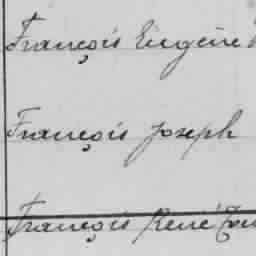 François Eugène
François Joseph
François René